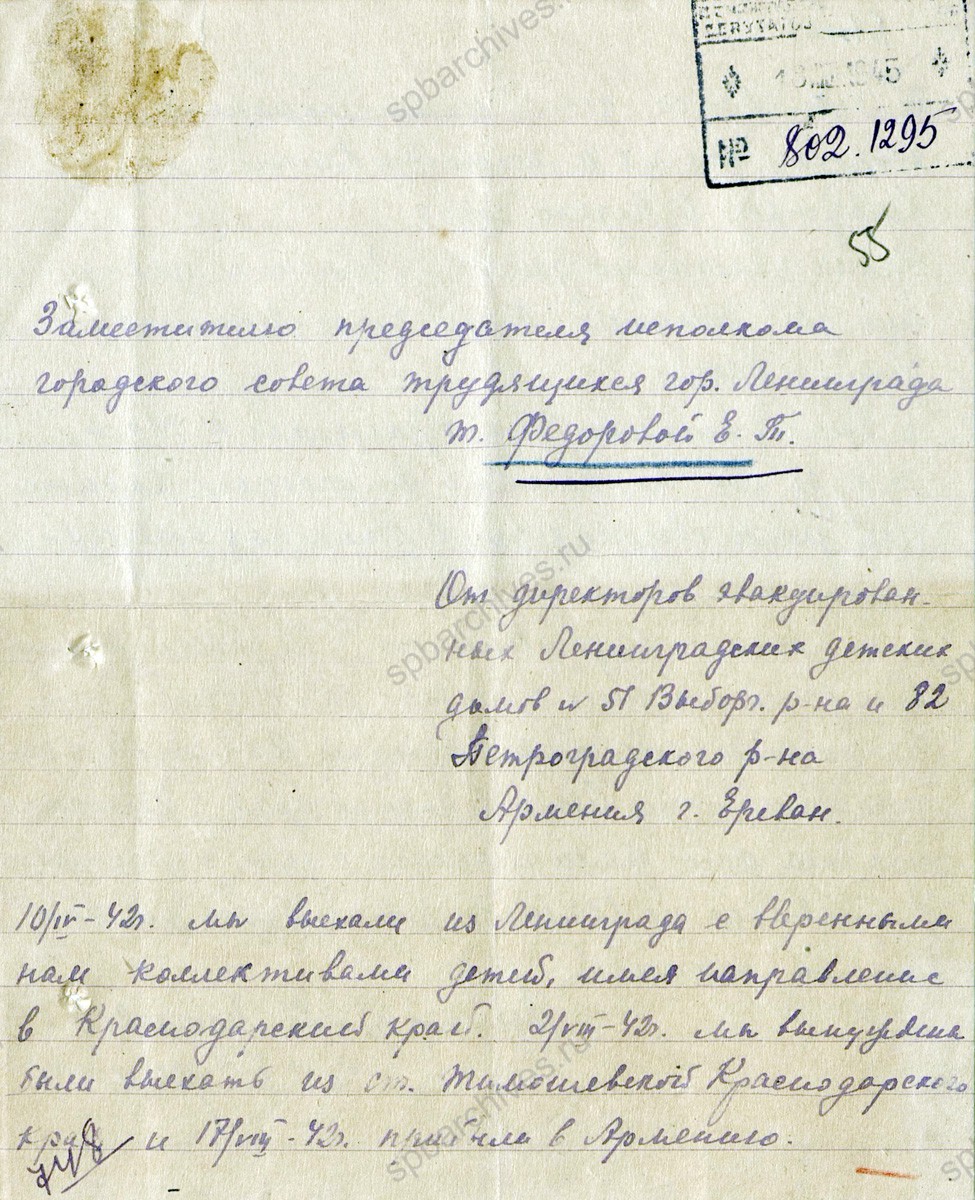 ДЕПУТАТОВ
1945
№ 802.1295
55
Заместителю председателя исполкома
городского совета трудящихся гор. Ленинграда
т. Федоровой Е. Т.
От директоров эвакуирован-
ных Ленинградских детских
домов № 51 Выборг. р-на и 82
Петроградского р-на
Армения г. Ереван.
10/IV-42г. мы выехали из Ленинграда с вверенными
нам коллективами детей, имея направление
в Краснодарский край. 2/VIII-42г. мы вынуждены
были выехать из ст. Тимошевской Краснодарского
края и 17/VIII-42г. прибыли в Армению.
748
spbarchives.ru
spbarchives.ru
spbarchives.ru